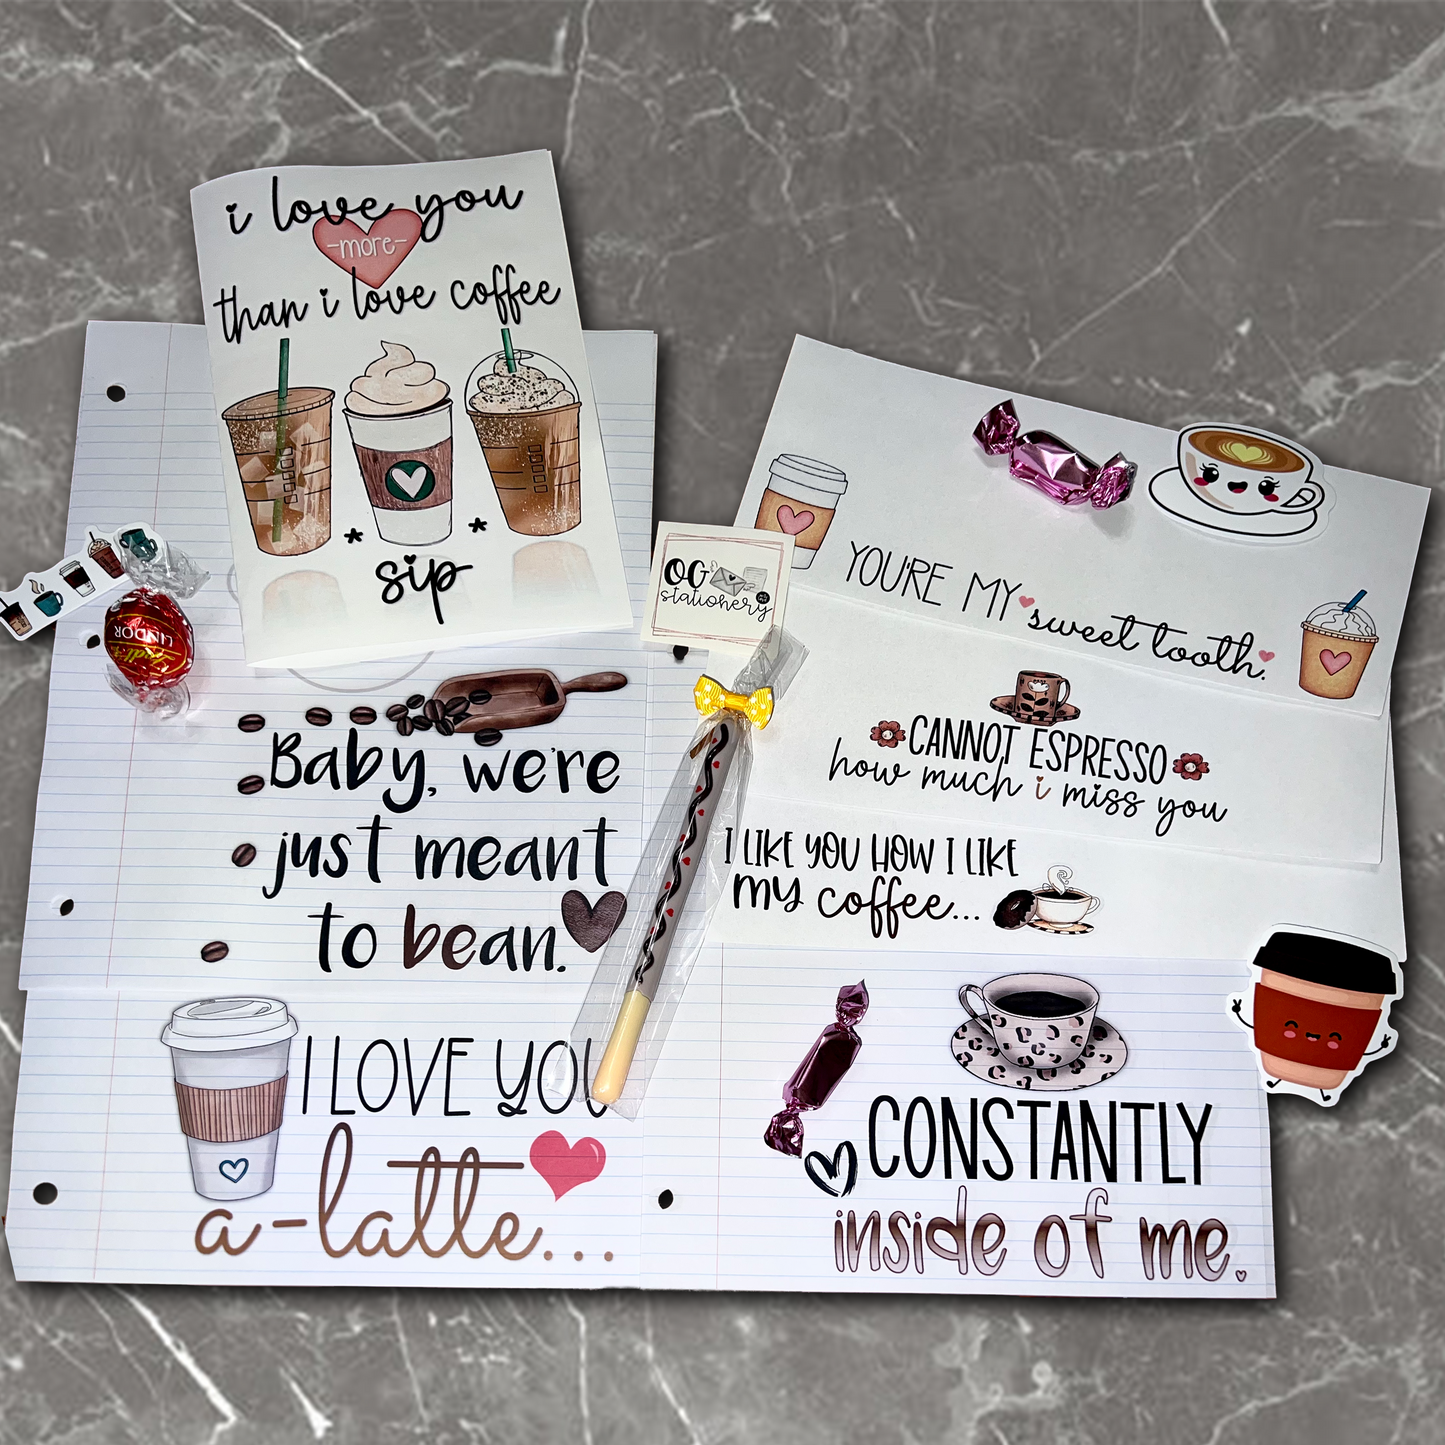 i love you
-more-
than i love coffee
sip
OG
stationery
LINDOR
Lindt
Baby, we're
just meant
to bean.
I LOVE YOU
a-latte...
YOU'RE MY sweet tooth.
CANNOT ESPRESSO
how much i miss you
I LIKE YOU HOW I LIKE
MY coffee...
CONSTANTLY
inside of me.